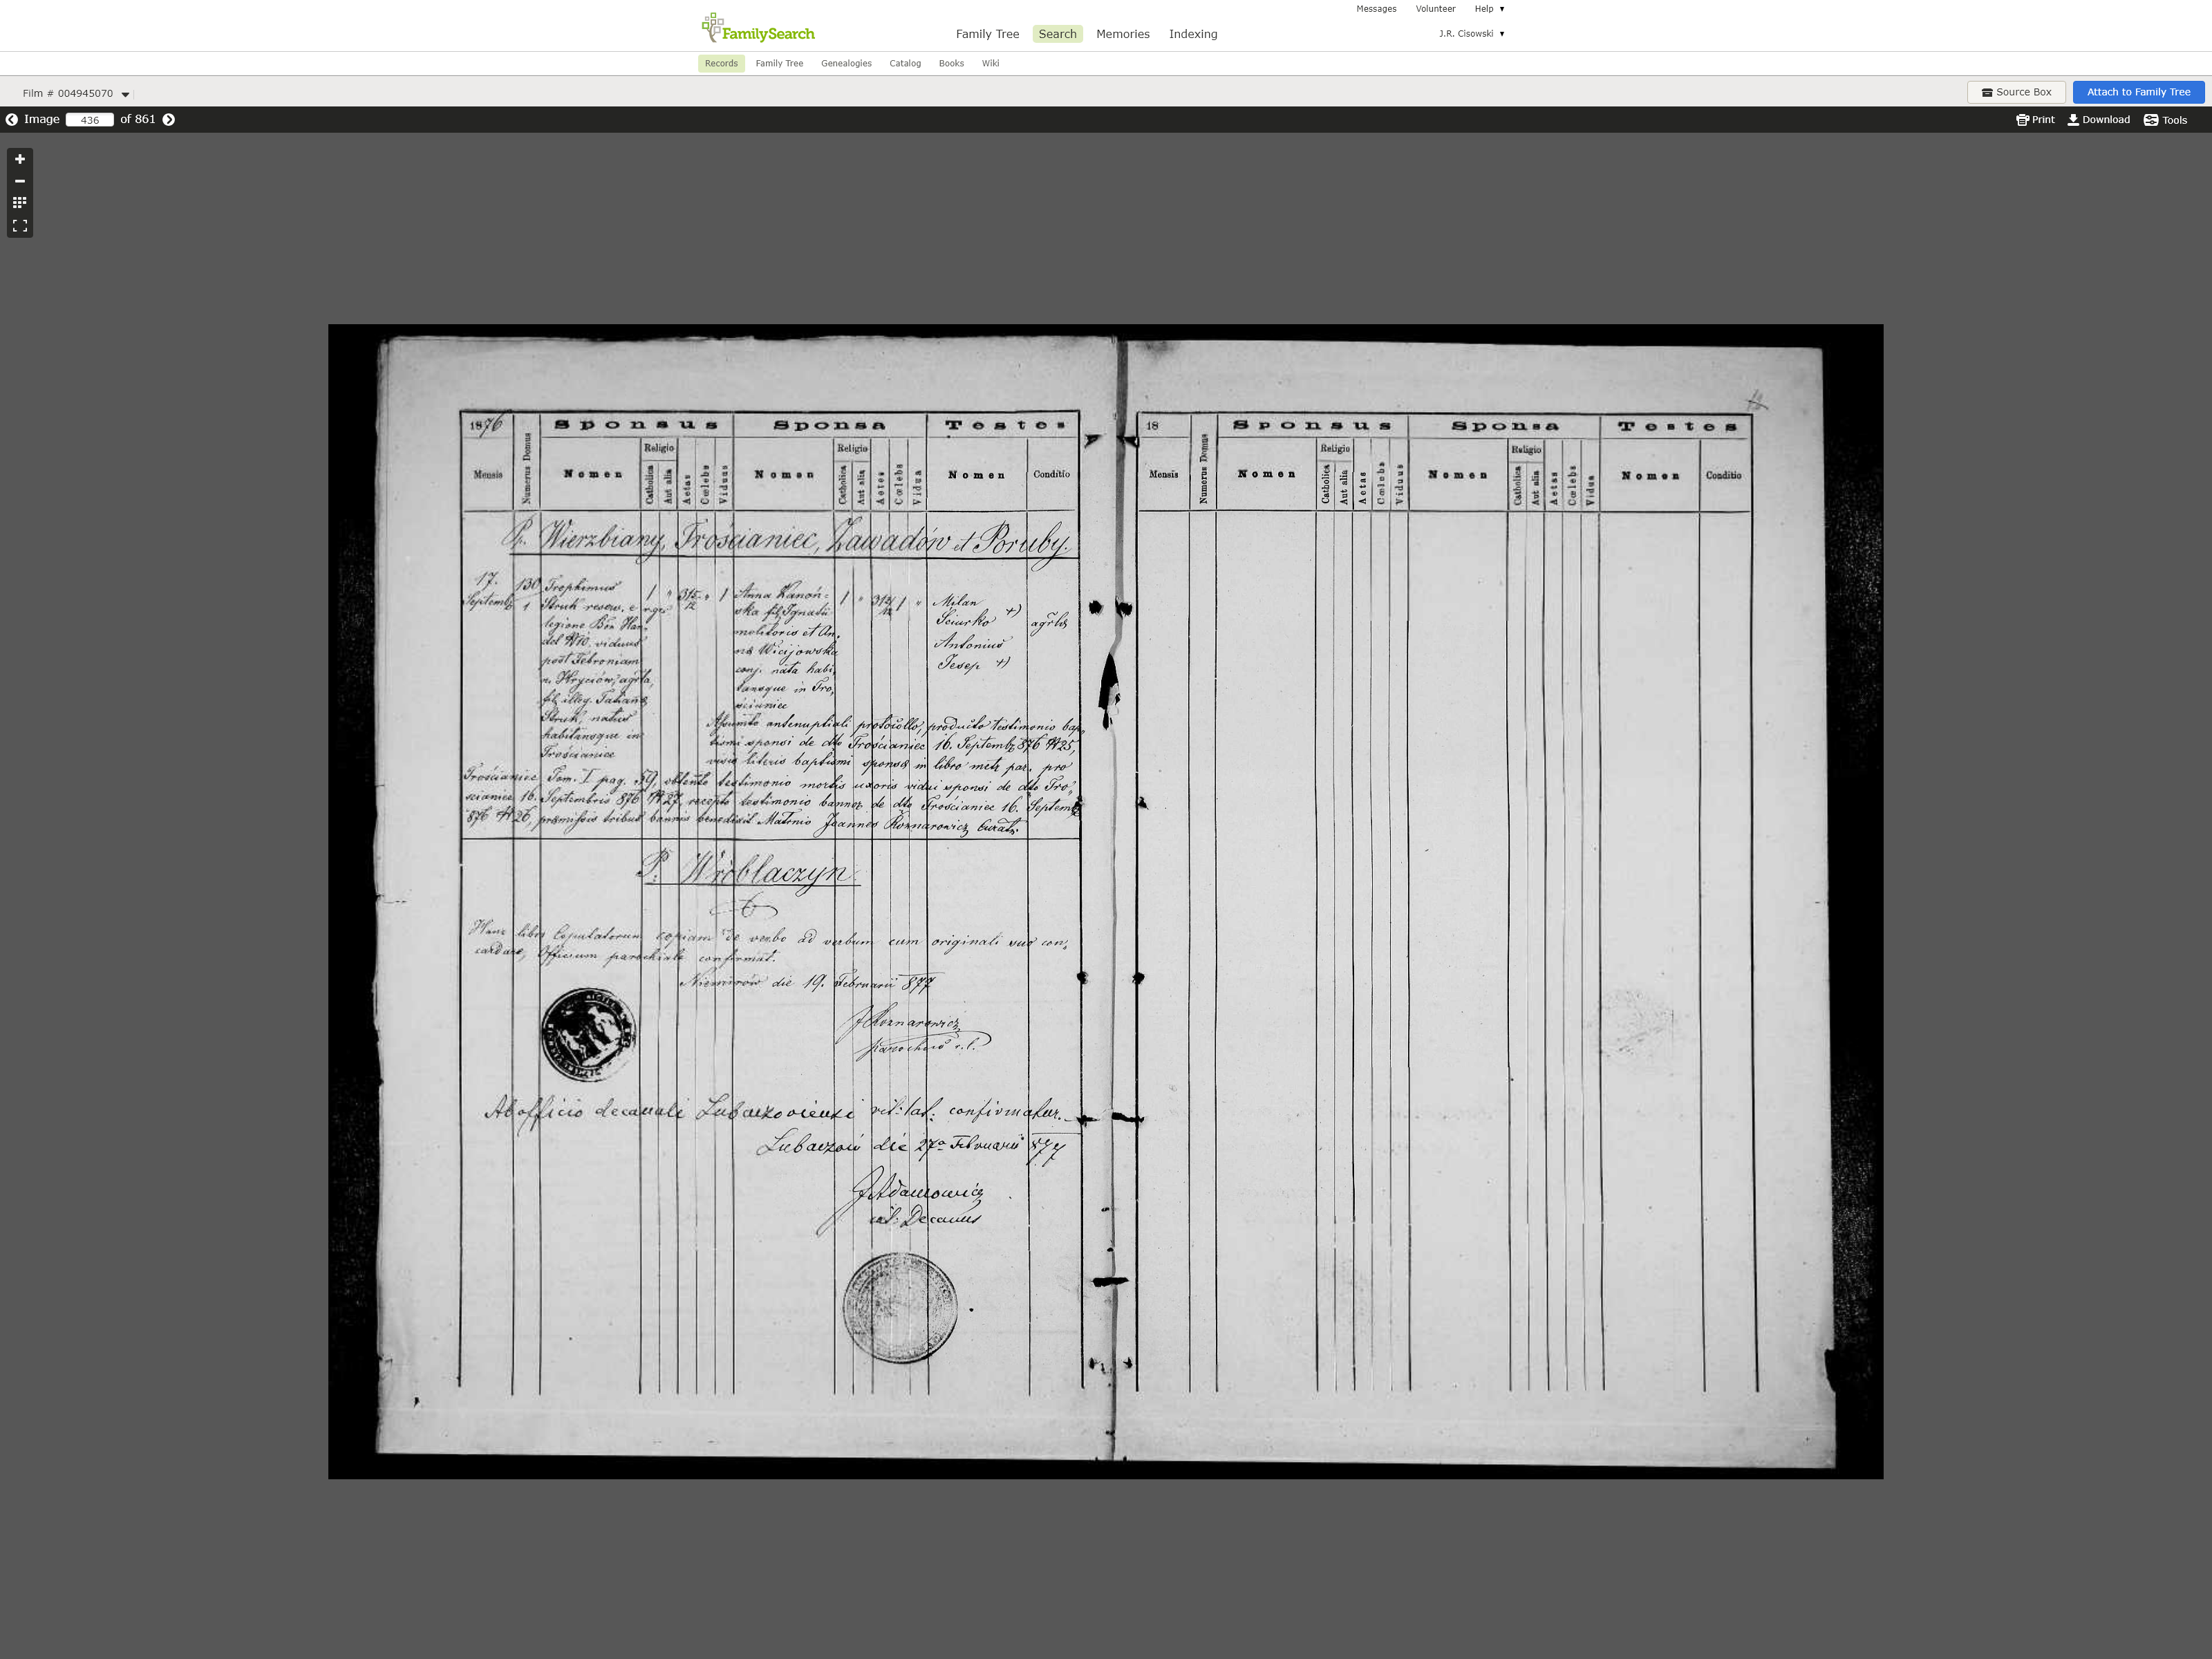 Messages Volunteer Help
FamilySearch
Family Tree Search Memories Indexing
J.R. Cisowski
Records Family Tree Genealogies Catalog Books Wiki
Film # 004945070
Source Box
Attach to Family Tree
Image 436 of 861
Print Download Tools
1876
Mensis
Numerus Domus
Sponsus
Nomen
Religio
Catholica
Aut alia
Aetas
Cœlebs
Viduus
Sponsa
Nomen
Religio
Catholica
Aut alia
Aetas
Cœlebs
Vidua
Testes
Nomen
Conditio
P. Wierzbiany, Trościaniec, Zawadów et Poruby.
17.
Septemb
130
1
Trophimus
Struk reserv. e
legione Bin Han
del viduus
post Febroniam
n. Hryciów, agrla,
fil. illeg. Tatianæ
Struk, natus
habitansque in
Trościaniec
Anna Kanoń-
ska fil. Ignatii
molitoris et An-
næ Wicijowska
conj. nata habi,
tansque in Tro,
ścianiec
Milan
Sciurko +)
Antonius
Jesep +)
Assumto antenuptiali protocollo, producto testimonio bap,
tismi sponsi de dto Trościaniec 16. Septemb 876 N 25,
visis literis baptismi sponsæ in libro metr. par. pro
Trościaniec Tom. I pag. 59, obtento testimonio mortis uxoris vidui sponsi de dto Tro,
ścianiec 16. Septembris 876 N 27, recepto testimonio bannor. de dto Trościaniec 16. Septemb
876 N 26, præmissis tribus bannis benedixit Matrimo Joannes Roznarowicz Curat.
P. Wróblaczyn.
Hanc libri Copulatorum copiam de verbo ad verbum cum originali suo con,
cordare, Officium parochiale confirmat.
Niemirów die 19. Februarii 877
J Roznarowicz
parochus r. l.
Ab officio decanali Lubaczoviensi rit: lat: confirmatur.
Lubaczów die 27a Februarii 877
J Adamowicz
Decanus
18
Mensis
Numerus Domus
Sponsus
Nomen
Religio
Catholica
Aut alia
Aetas
Cœlebs
Viduus
Sponsa
Nomen
Religio
Catholica
Aut alia
Aetas
Cœlebs
Vidua
Testes
Nomen
Conditio